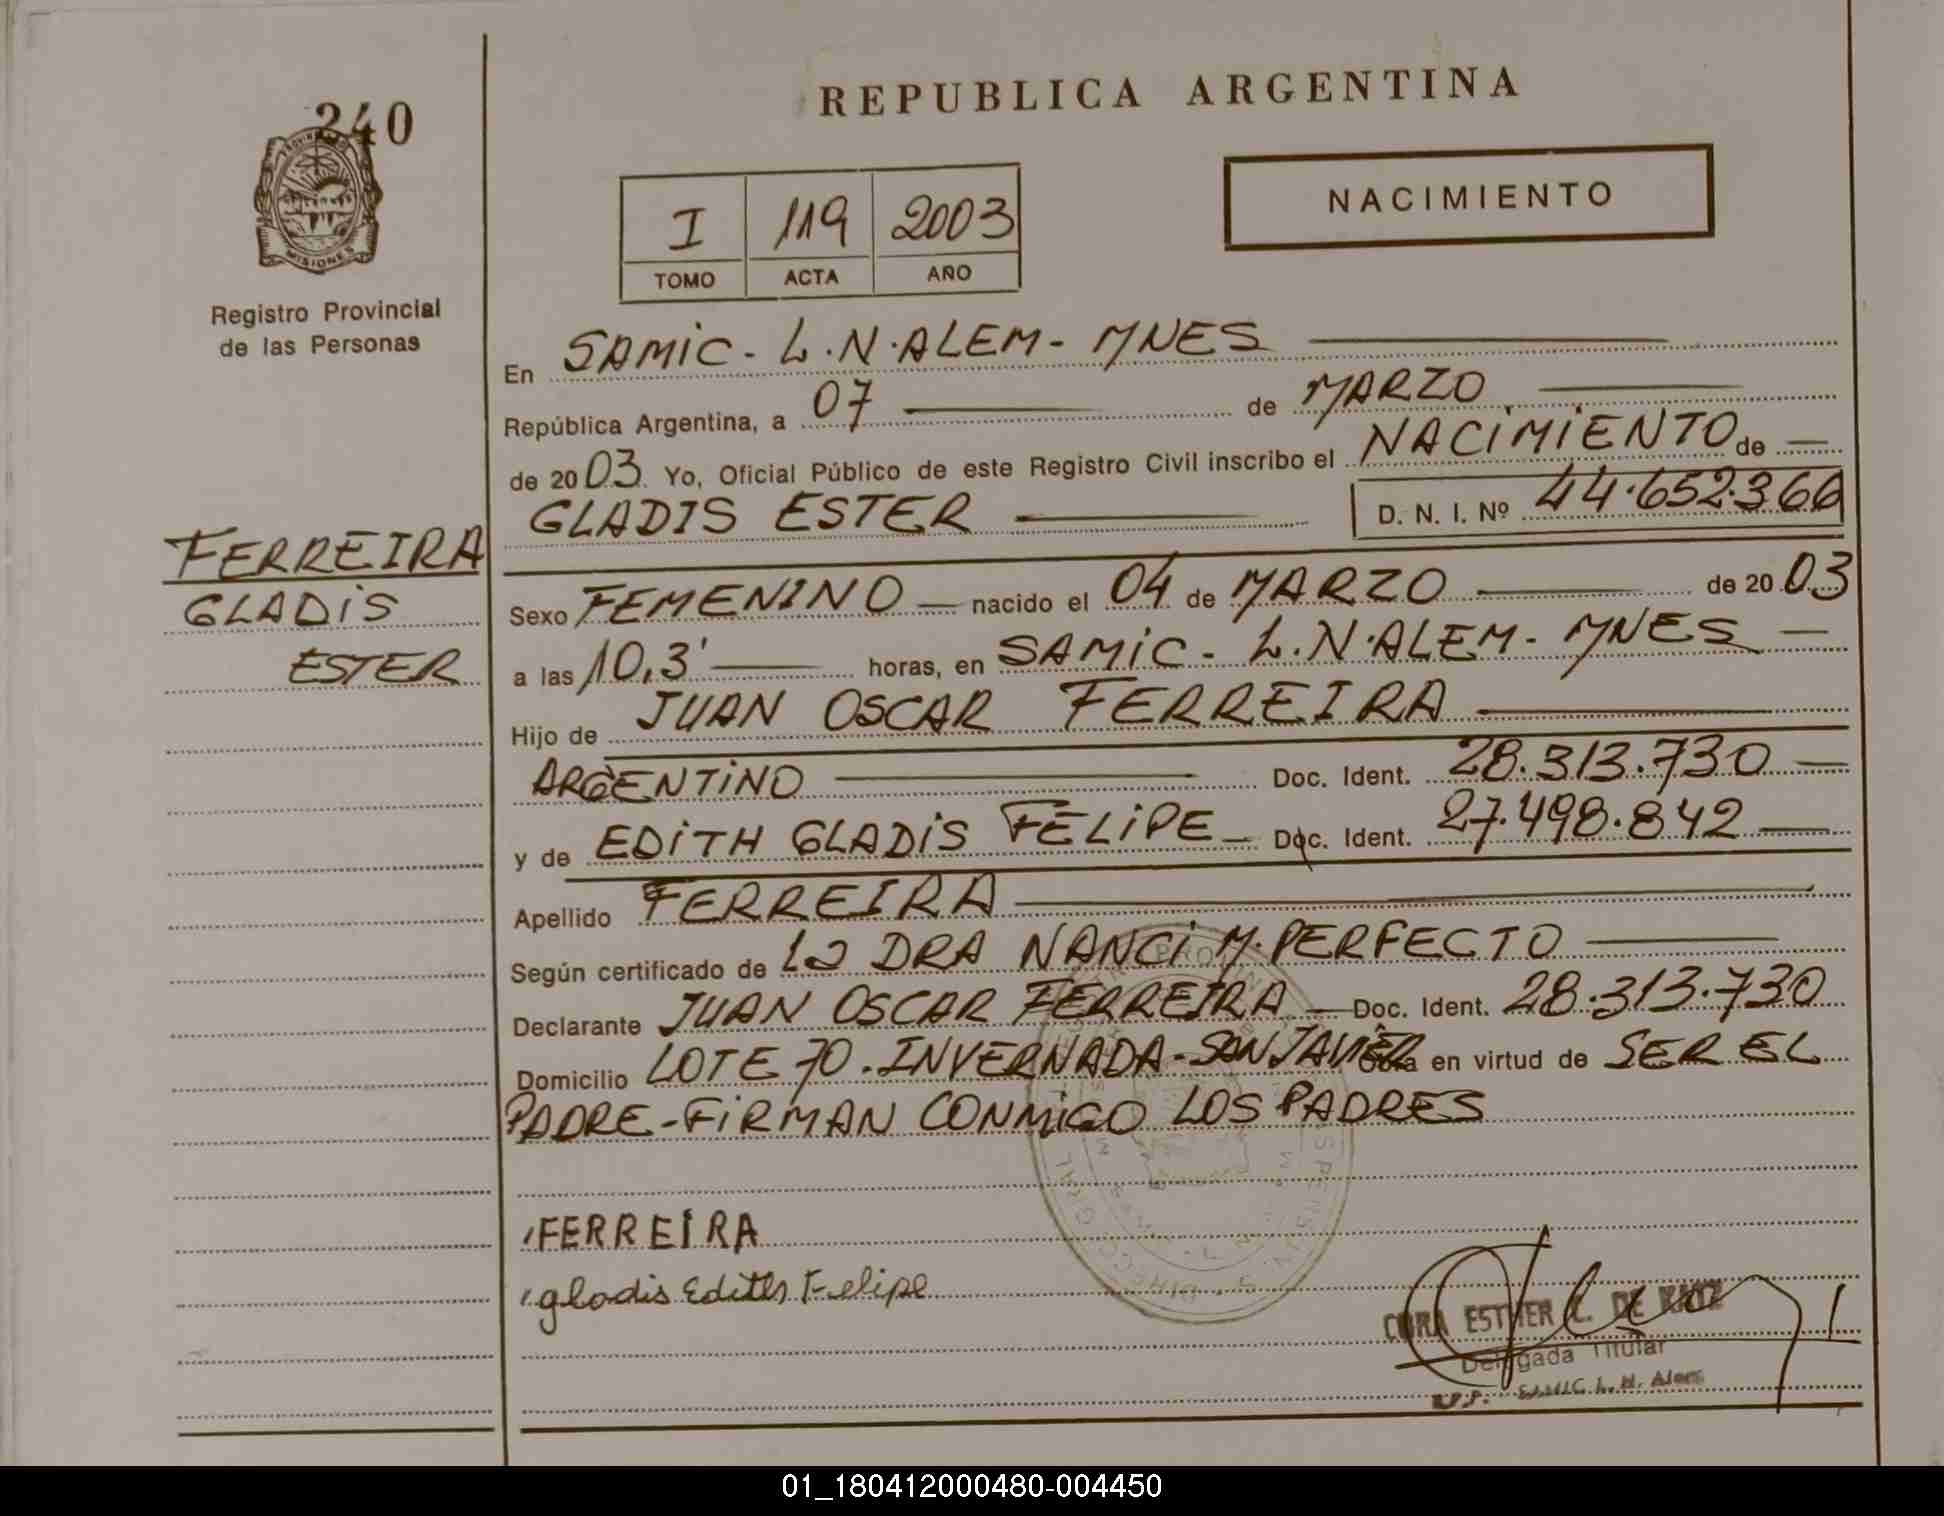 240
PROVINCIA DE
MISIONES
Registro Provincial
de las Personas
FERREIRA
GLADIS
ESTER
REPUBLICA ARGENTINA
I 119 2003
TOMO ACTA AÑO
NACIMIENTO
En SAMIC - L.N.ALEM - MNES
República Argentina, a 07 de MARZO
de 2003 Yo, Oficial Público de este Registro Civil inscribo el NACIMIENTO de
GLADIS ESTER D. N. I. Nº 44.652.366
Sexo FEMENINO nacido el 04 de MARZO de 2003
a las 10,3' horas, en SAMIC - L.N.ALEM - MNES
Hijo de JUAN OSCAR FERREIRA
ARGENTINO Doc. Ident. 28.313.730
y de EDITH GLADIS FELIPE Doc. Ident. 27.498.842
Apellido FERREIRA
Según certificado de LA DRA NANCI M. PERFECTO
Declarante JUAN OSCAR FERREIRA Doc. Ident. 28.313.730
Domicilio LOTE 70. INVERNADA - SAN JAVIER Obra en virtud de SER EL
PADRE - FIRMAN CONMIGO LOS PADRES
FERREIRA
gladis Edith Felipe
ESTHER C. DE
Delegada Titular
SAMIC L. N. Alem
01_180412000480-004450